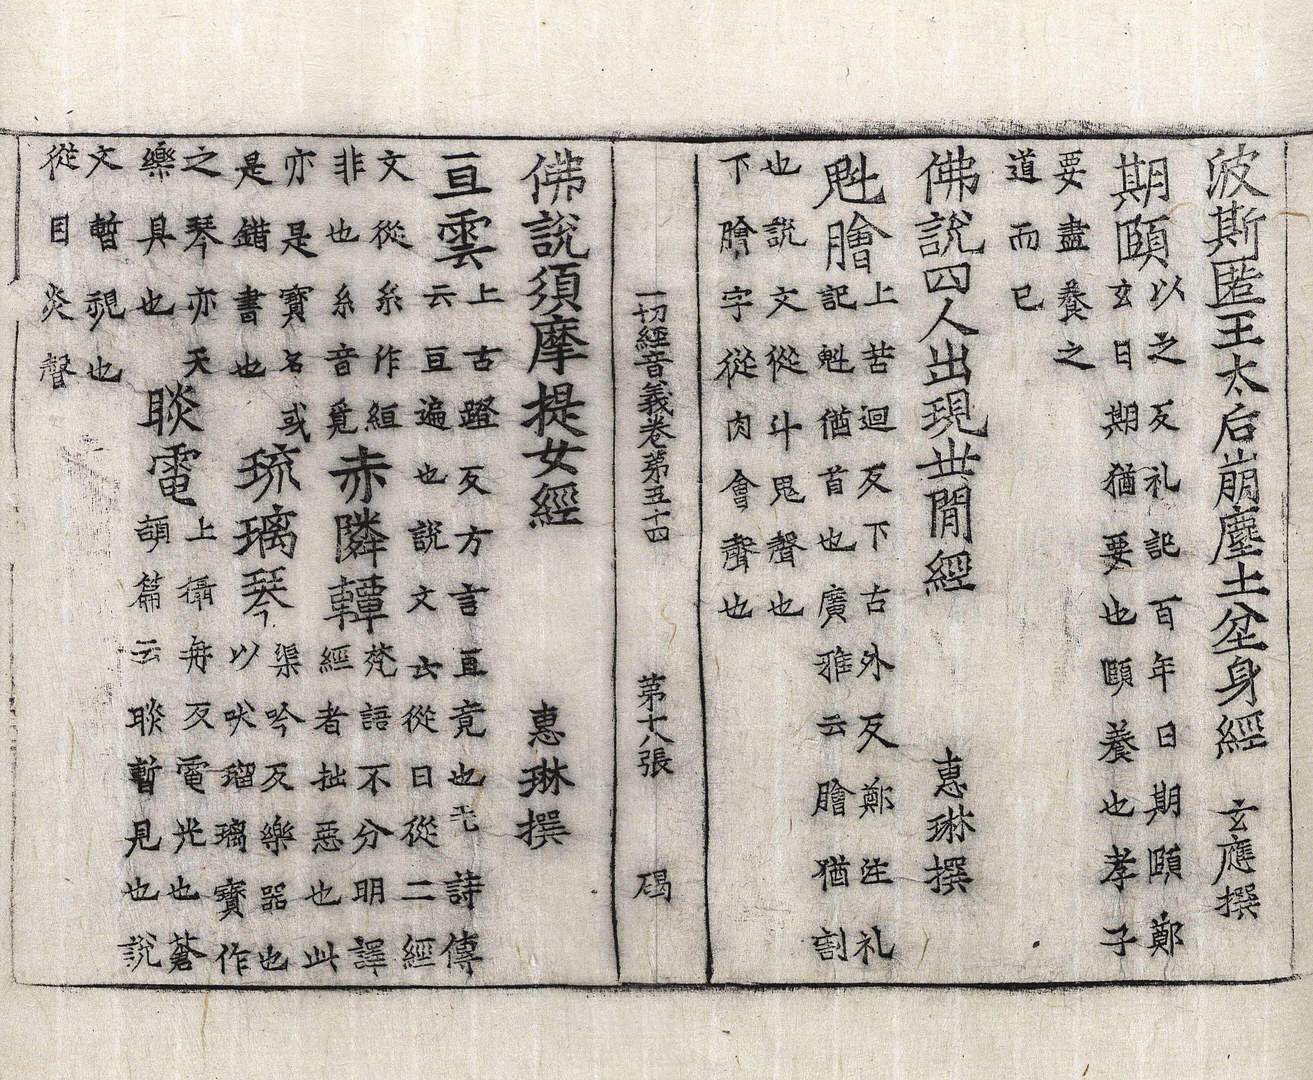 波斯匿王太后崩塵土坌身經　玄應撰
期頤以之反礼記百年曰期頤鄭
玄曰期猶要也頤養也孝子
要盡養之
道而已
佛說四人出現世間經　惠琳撰
魁膾上苦迴反下古外反鄭注礼
記魁猶首也廣雅云膾猶割
也說文從斗鬼聲也
下膾字從肉會聲也
一切經音義卷第五十四　第十八張　碣
佛說須摩提女經　惠琳撰
亘雲上古蹬反方言亘竟也毛詩傳
云亘遍也說文云從日從二經
文從糸作絙
非也糸音覓
赤隣韂梵語不分明譯
經者拙惡也此
亦是寶名或
是錯書也
琉璃琴渠吟反樂器也
以吠瑠璃寶作
之琴亦天
樂具也
睒電上攝冉反電光也蒼
頡篇云睒暫見也說
文暫視也
從目炎聲